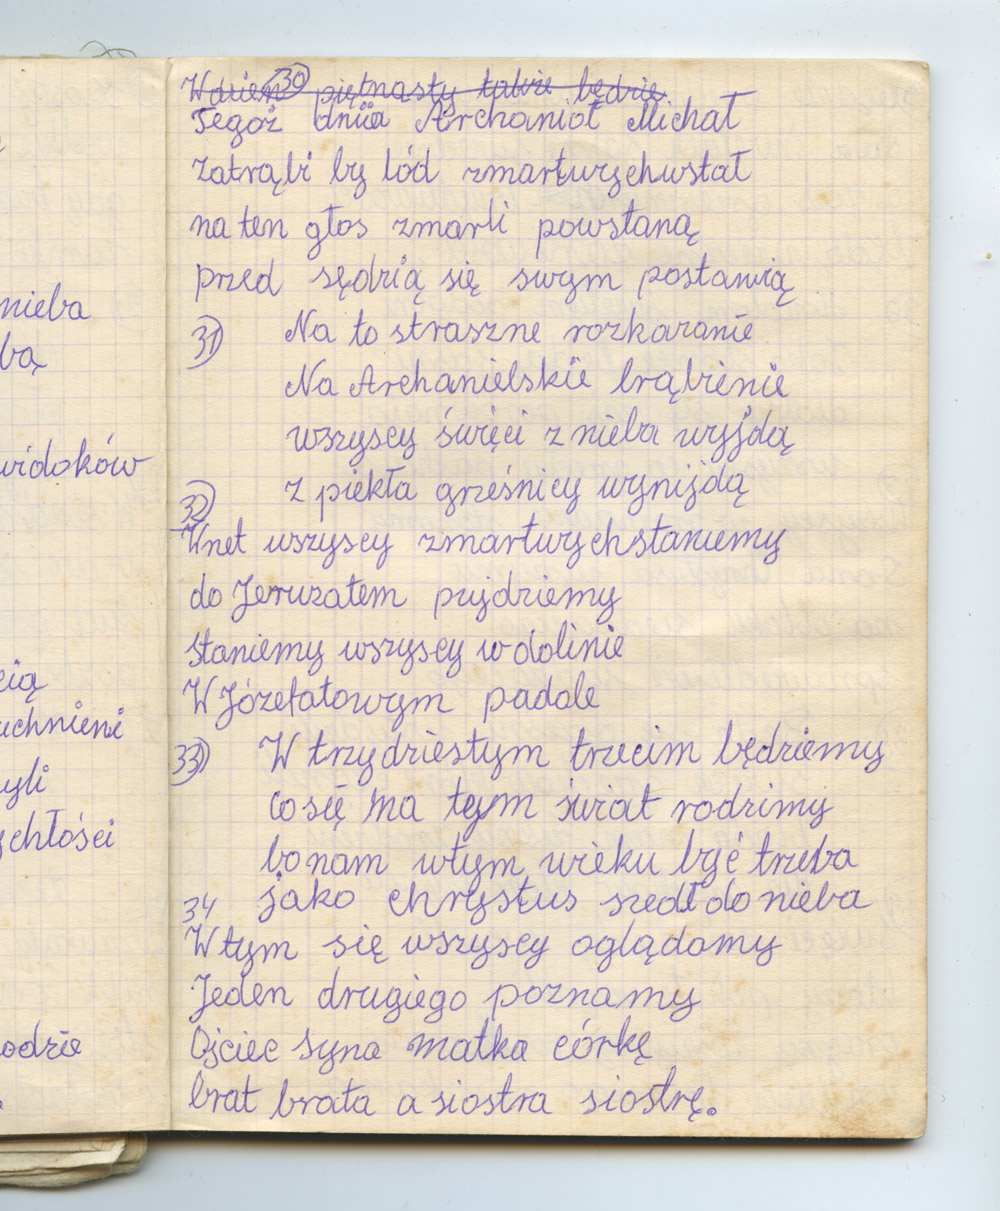 nieba
bą
widoków
cią
uchnieni
yli
chłości
odzie
W dzień 30) piętnasty takie będzie
Tegoż dnia Archanioł Michał
Zatrąbi by lód zmartwychwstał
na ten głos zmarli powstaną
przed sędzią się swym postawią
31) Na to straszne rozkazanie
Na Archanielskie trąbienie
wszyscy święci z nieba wyjdą
z piekła grześnicy wynijdą
32)
Wnet wszyscy zmartwychstaniemy
do Jeruzalem pujdziemy
staniemy wszyscy w dolinie
W Józefatowym padole
33) W trzydziestym trzecim będziemy
co się ma tym świat rodzimy
bo nam wtym wieku być trzeba
jako chrystus szedł do nieba
34
W tym się wszyscy oglądamy
Jeden drugiego poznamy
Ojciec syna matka córkę
brat brata a siostra siostrę.